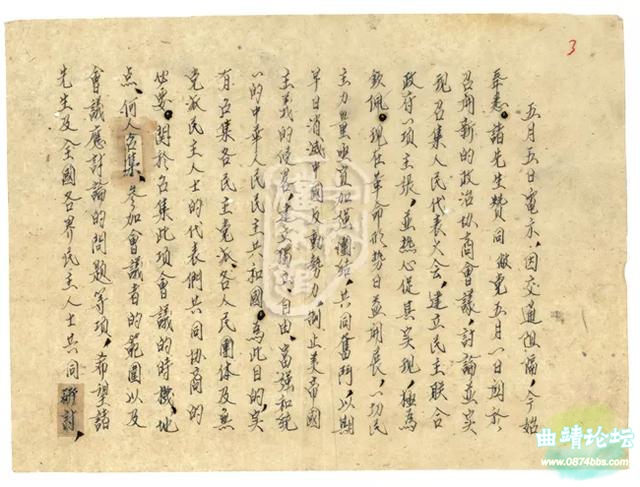 3
五月五日電示,因交通阻隔,今始
奉悉。諸先生贊同敝党五月一日関於
召開新的政治協商會議,討論並实
现召集人民代表大会,建立民主联合
政府一项主張,並热心促其实现,極為
钦佩。现在革命形势日益開展,一切民
主力量亟宜加强團結,共同奮鬥,以期
早日消滅中國反動勢力,制止美帝國
主義的侵略,建立獨立、自由、富强和統
一的中華人民民主共和國。為此目的,实
有召集各民主党派、各人民團体及無
党派民主人士的代表們共同協商的
必要。関於召集此項會議的時機、地
点、何人召集、参加會議者的範圍以及
會議應討論的問題等項,希望諸
先生及全國各界民主人士共同研討,
曲靖论坛
www.0874bbs.com